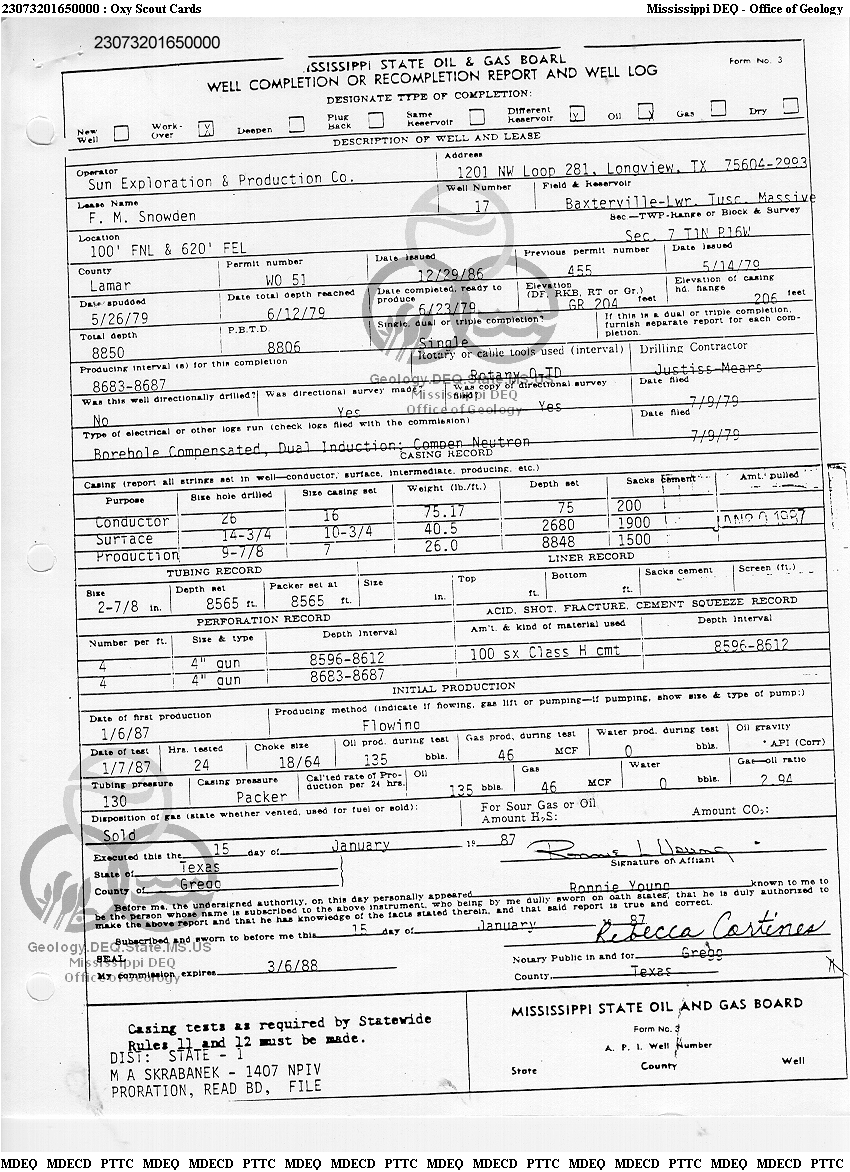 23073201650000 : Oxy Scout Cards Mississippi DEQ - Office of Geology
23073201650000
MISSISSIPPI STATE OIL & GAS BOARD Form No. 3
WELL COMPLETION OR RECOMPLETION REPORT AND WELL LOG
DESIGNATE TYPE OF COMPLETION:
New Well Work-Over X Deepen Plug Back Same Reservoir Different Reservoir X Oil X Gas Dry
DESCRIPTION OF WELL AND LEASE
Operator Address
Sun Exploration & Production Co. 1201 NW Loop 281, Longview, TX 75604-2993
Lease Name Well Number Field & Reservoir
F. M. Snowden 17 Baxterville-Lwr. Tusc. Massive
Location Sec.—TWP-Range or Block & Survey
100' FNL & 620' FEL Sec. 7 T1N R16W
County Permit number Date issued Previous permit number Date issued
Lamar WO 51 12/29/86 455 5/14/79
Date spudded Date total depth reached Date completed, ready to produce Elevation (DF, RKB, RT or Gr.) Elevation of casing hd. flange
5/26/79 6/12/79 6/23/79 GR 204 feet 206 feet
Total depth P.B.T.D. Single, dual or triple completion? If this is a dual or triple completion, furnish separate report for each completion.
8850 8806 Single
Producing interval (s) for this completion Rotary or cable tools used (interval) Drilling Contractor
8683-8687 Rotary 0-TD Justiss-Mears
Was this well directionally drilled? Was directional survey made? Was copy of directional survey filed? Date filed
No Yes Yes 7/9/79
Type of electrical or other logs run (check logs filed with the commission) Date filed
Borehole Compensated, Dual Induction; Compen Neutron 7/9/79
CASING RECORD
Casing (report all strings set in well—conductor, surface, intermediate, producing, etc.)
Purpose Size hole drilled Size casing set Weight (lb./ft.) Depth set Sacks cement Amt. pulled
Conductor 26 16 75.17 75 200
Surface 14-3/4 10-3/4 40.5 2680 1900
Production 9-7/8 7 26.0 8848 1500
TUBING RECORD LINER RECORD
Size Depth set Packer set at Size Top Bottom Sacks cement Screen (ft.)
2-7/8 in. 8565 ft. 8565 ft. in. ft. ft.
PERFORATION RECORD ACID, SHOT, FRACTURE, CEMENT SQUEEZE RECORD
Number per ft. Size & type Depth Interval Am't. & kind of material used Depth Interval
4 4" gun 8596-8612 100 sx Class H cmt 8596-8612
4 4" gun 8683-8687
INITIAL PRODUCTION
Date of first production Producing method (indicate if flowing, gas lift or pumping—if pumping, show size & type of pump:)
1/6/87 Flowing
Date of test Hrs. tested Choke size Oil prod. during test Gas prod. during test Water prod. during test Oil gravity
1/7/87 24 18/64 135 bbls. 46 MCF 0 bbls. ° API (Corr)
Tubing pressure Casing pressure Cal'ted rate of Production per 24 hrs. Oil Gas Water Gas—oil ratio
130 Packer 135 bbls. 46 MCF 0 bbls. 2.94
Disposition of gas (state whether vented, used for fuel or sold): For Sour Gas or Oil
Sold Amount H₂S: Amount CO₂:
Executed this the 15 day of January 19 87
State of Texas Signature of Affiant
County of Gregg
Before me, the undersigned authority, on this day personally appeared Ronnie Young known to me to
be the person whose name is subscribed to the above instrument, who being by me dully sworn on oath states, that he is duly authorized to
make the above report and that he has knowledge of the facts stated therein, and that said report is true and correct.
Subscribed and sworn to before me this 15 day of January 87
Rebecca Cortines
SEAL Notary Public in and for Gregg
My commission expires 3/6/88 County Texas
Casing tests as required by Statewide
Rules 11 and 12 must be made.
DIST: STATE - 1
M A SKRABANEK - 1407 NPIV
PRORATION, READ BD, FILE
MISSISSIPPI STATE OIL AND GAS BOARD
Form No. 3
A. P. I. Well Number
State County Well
Geology.DEQ.State.MS.US
Mississippi DEQ
Office of Geology
Geology.DEQ.State.MS.US
Mississippi DEQ
Office of Geology
MDEQ MDECD PTTC MDEQ MDECD PTTC MDEQ MDECD PTTC MDEQ MDECD PTTC MDEQ MDECD PTTC MDEQ MDECD PTTC